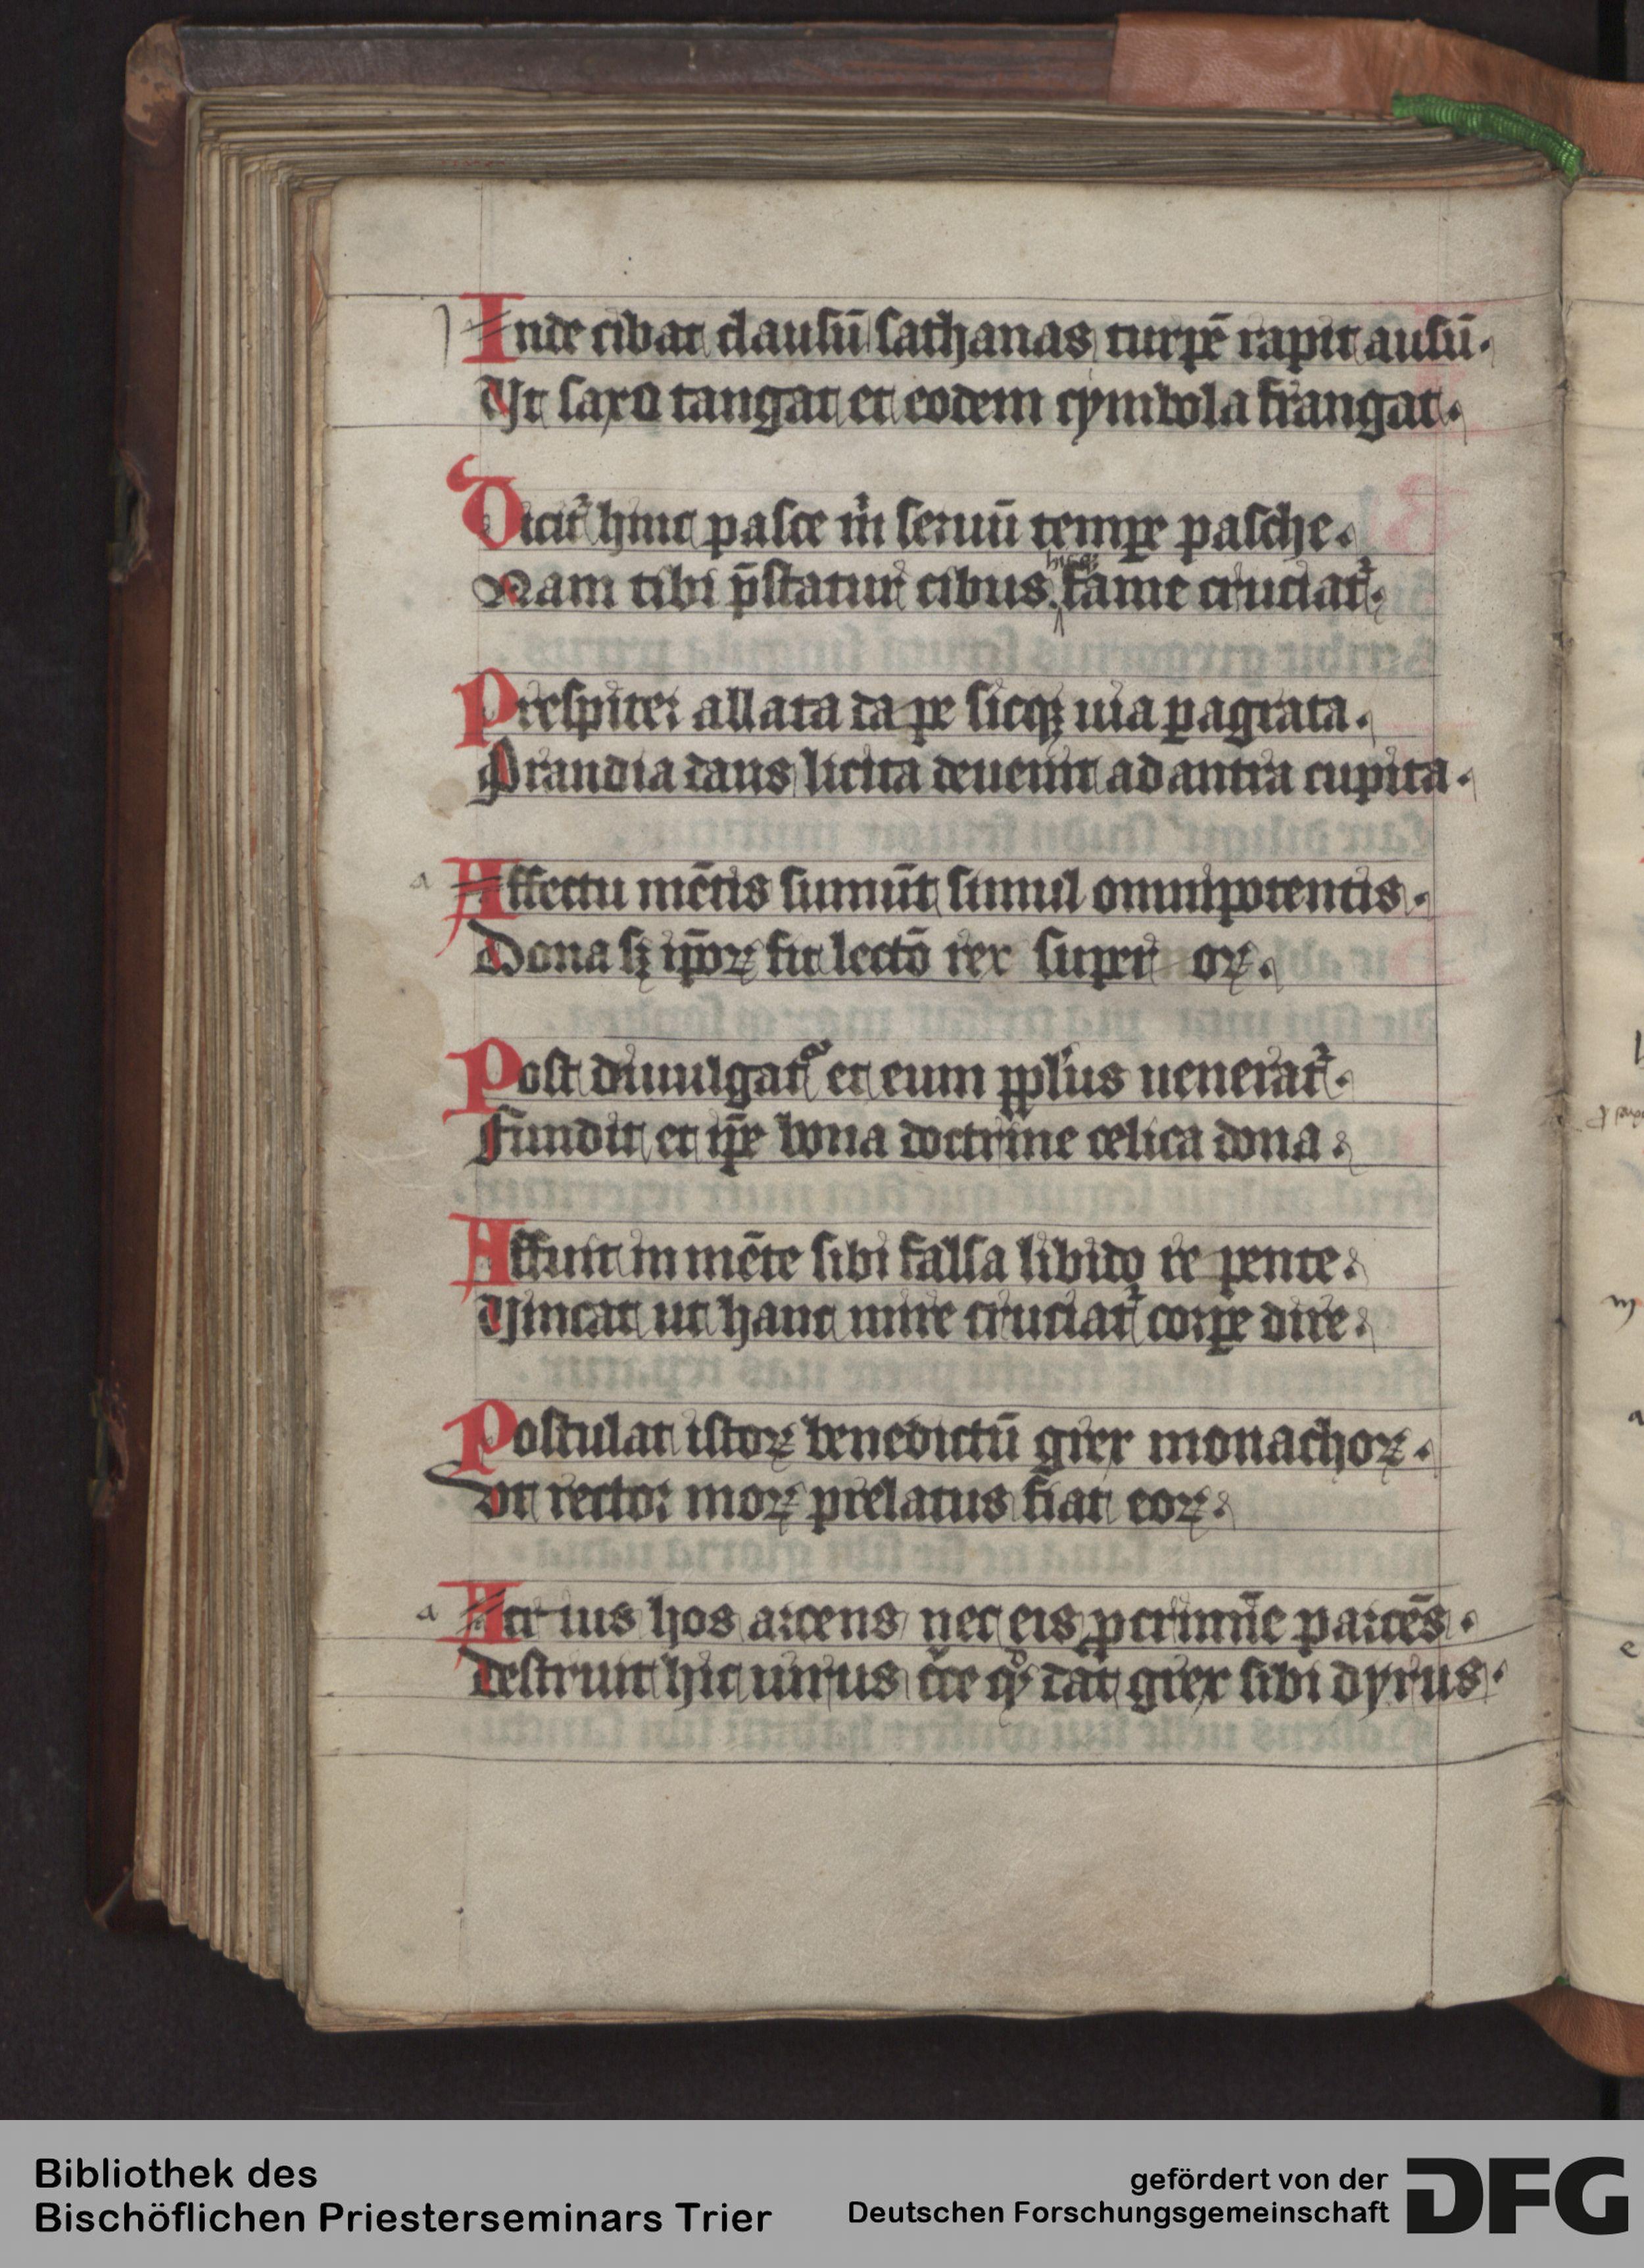 Inde cibat clausū sathanas turpē rapit ausū.
Vt saxo tangat et eodem cymbola frangat.
Dicit᷑ huic pasce m̄ seruū tempe pasche.
Nam tibi p̄statur cibus fame cruciat᷑.
Prespiter allata dape sicqꝫ uia ꝑagrata.
Prandia dans licita deuenit ad antra cupita.
a
Affectu mētis sumūt simul omnipotentis.
Dona sꝫ ip̄oꝝ fit lectō rex super oꝝ.
Post diuulgat᷑ et eum ppl'us uenerat᷑.
Fundit et ip̄e bona doctrine celica dona.
Affuit in mēte sibi falsa libido re pente.
Vincat ut hanc mire cruciat᷑ corpe dire.
Postulat istoꝝ benedictū grex monachoꝝ.
Vt rector moꝝ prelatus fiat eoꝝ.
a
Acrius hos arcens nec eis parcēs.
Destruit hic uirus dat grex sibi dyrus.
Bibliothek des
Bischöflichen Priesterseminars Trier
gefördert von der
Deutschen Forschungsgemeinschaft
DFG